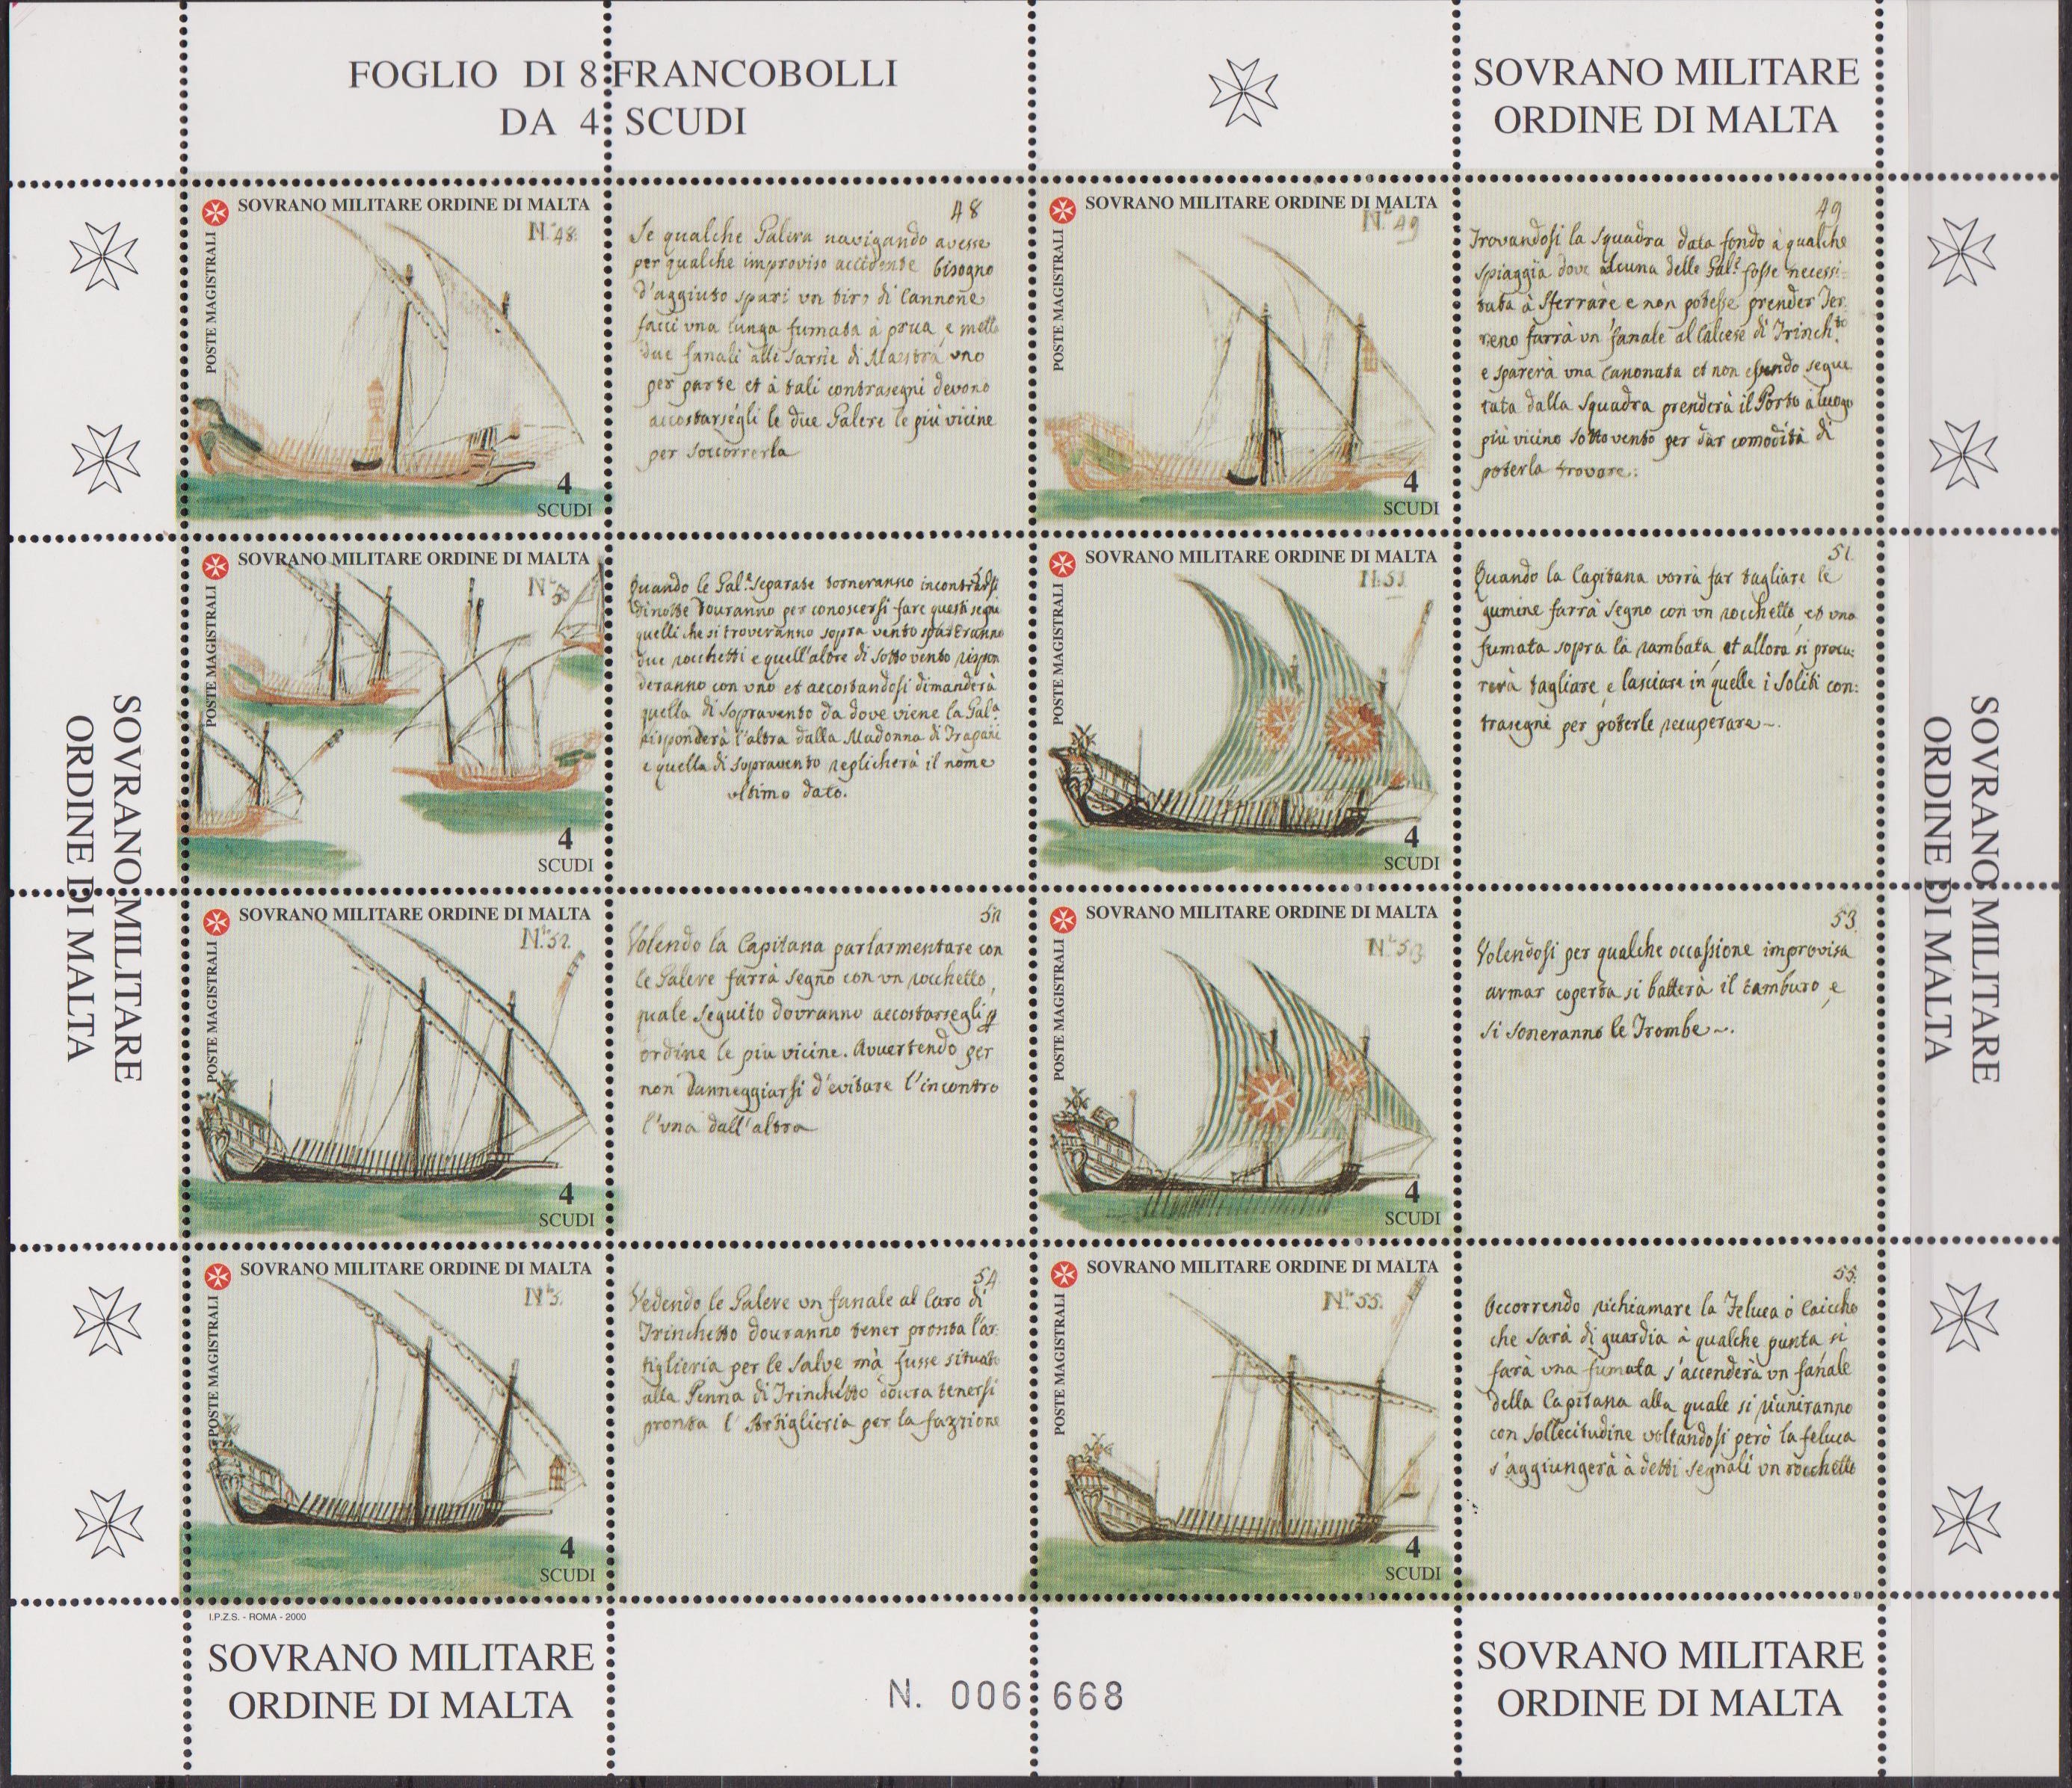 FOGLIO DI 8 FRANCOBOLLI
DA 4 SCUDI
SOVRANO MILITARE
ORDINE DI MALTA
SOVRANO MILITARE ORDINE DI MALTA
POSTE MAGISTRALI
N. 48.
4
SCUDI
48
Se qualche Galera navigando avesse
per qualche improviso accidente bisogno
d'aggiuto spari vn tiro di Cannone
facci vna lunga fumata à prua e metta
due fanali alli sarsie di Maestra vno
per parte et à tali contrasegni devono
accostarsegli le due Galere le più vicine
per soccorrerla
SOVRANO MILITARE ORDINE DI MALTA
POSTE MAGISTRALI
N. 49
4
SCUDI
49
Trovandosi la Squadra data fondo à qualche
spiaggia dove alcuna delle Gal.e fosse necessi-
tata à sferrare e non potesse prender Ter.
reno farrà vn fanale al Calcese di Trinch.to
e sparerà vna Canonata et non essendo segui
tata dalla Squadra prenderà il Porto ò luogo
più vicino sotto vento per dar comodità di
poterla trovare.
SOVRANO MILITARE ORDINE DI MALTA
POSTE MAGISTRALI
4
SCUDI
Quando le Gal.e separate torneranno incontrarsi
di notte douranno per conoscersi fare questi segni
quelli che si troveranno sopra vento spareranno
due rocchetti e quell'altre di sotto vento rispon
deranno con vno et accostandosi dimanderà
quella di sopravento da dove viene la Gal.a
risponderà l'altra dalla Madonna di Trapani
e quella di sopravento replicherà il nome
vltimo dato.
SOVRANO MILITARE ORDINE DI MALTA
POSTE MAGISTRALI
N. 51
4
SCUDI
51.
Quando la Capitana vorrà far tagliare le
gumine farrà segno con vn rocchetto, et vna
fumata sopra la rambata, et allora si procu:
rerà tagliare, e lasciare in quelle i soliti con:
trasegni per poterle recuperare~.
SOVRANO MILITARE ORDINE DI MALTA
POSTE MAGISTRALI
N. 52.
4
SCUDI
Volendo la Capitana parlarmentare con
le Galere farrà segno con vn rocchetto,
quale seguito dovranno accostarsegli p
ordine le piu vicine. Avvertendo per
non danneggiarsi d'evitare l'incontro
l'vna dall'altra
SOVRANO MILITARE ORDINE DI MALTA
POSTE MAGISTRALI
N. 53
4
SCUDI
53.
Volendosi per qualche occassione improvisa
armar coperta si batterà il tamburo, e
si soneranno le Trombe~.
SOVRANO MILITARE ORDINE DI MALTA
POSTE MAGISTRALI
N. 5.
4
SCUDI
54
Vedendo le Galere vn fanale al Caro di
Trinchetto douranno tener pronta l'ar:
tiglieria per le salve mà fusse situato
alla Penna di Trinchetto doura tenersi
pronta l'Artiglieria per la fazzione
SOVRANO MILITARE ORDINE DI MALTA
POSTE MAGISTRALI
N. 55.
4
SCUDI
55.
Occorrendo richiamare la Feluca ò Caiccho
che sarà di guardia à qualche punta si
farà vna fumata s'accenderà vn fanale
della Capitana alla quale si riuniranno
con sollecitudine voltandosi però la feluca
s'aggiungerà à detti segnali vn rocchetto
SOVRANO MILITARE
ORDINE DI MALTA
SOVRANO MILITARE
ORDINE DI MALTA
I.P.Z.S. - ROMA - 2000
SOVRANO MILITARE
ORDINE DI MALTA
N. 006 668
SOVRANO MILITARE
ORDINE DI MALTA